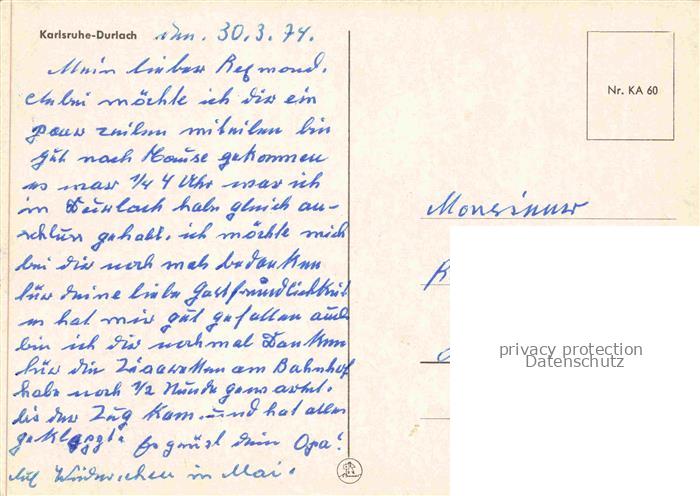 Karlsruhe-Durlach den. 30.3.74.
Mein lieber Reymond.
Anbei möchte ich dir ein
paar zeilen miteilen bin
gut nach Hause gekommen
es war 1/4 4 Uhr war ich
in Durlach habe gleich an-
schluss gehabt. ich möchte mich
bei dir noch mals bedanken
für deine liebe Gastfreundlichkeit
es hat mir gut gefallen auch
bin ich dir nochmal Danken
für die Zigaretten am Bahnhof
habe noch 1/2 Stunde gewartet.
bis der Zug kam. und hat alles
geklappt. Es grüst dein Opa!
Auf Wiedersehen in Mai.
Nr. KA 60
Monsieur
privacy protection
Datenschutz